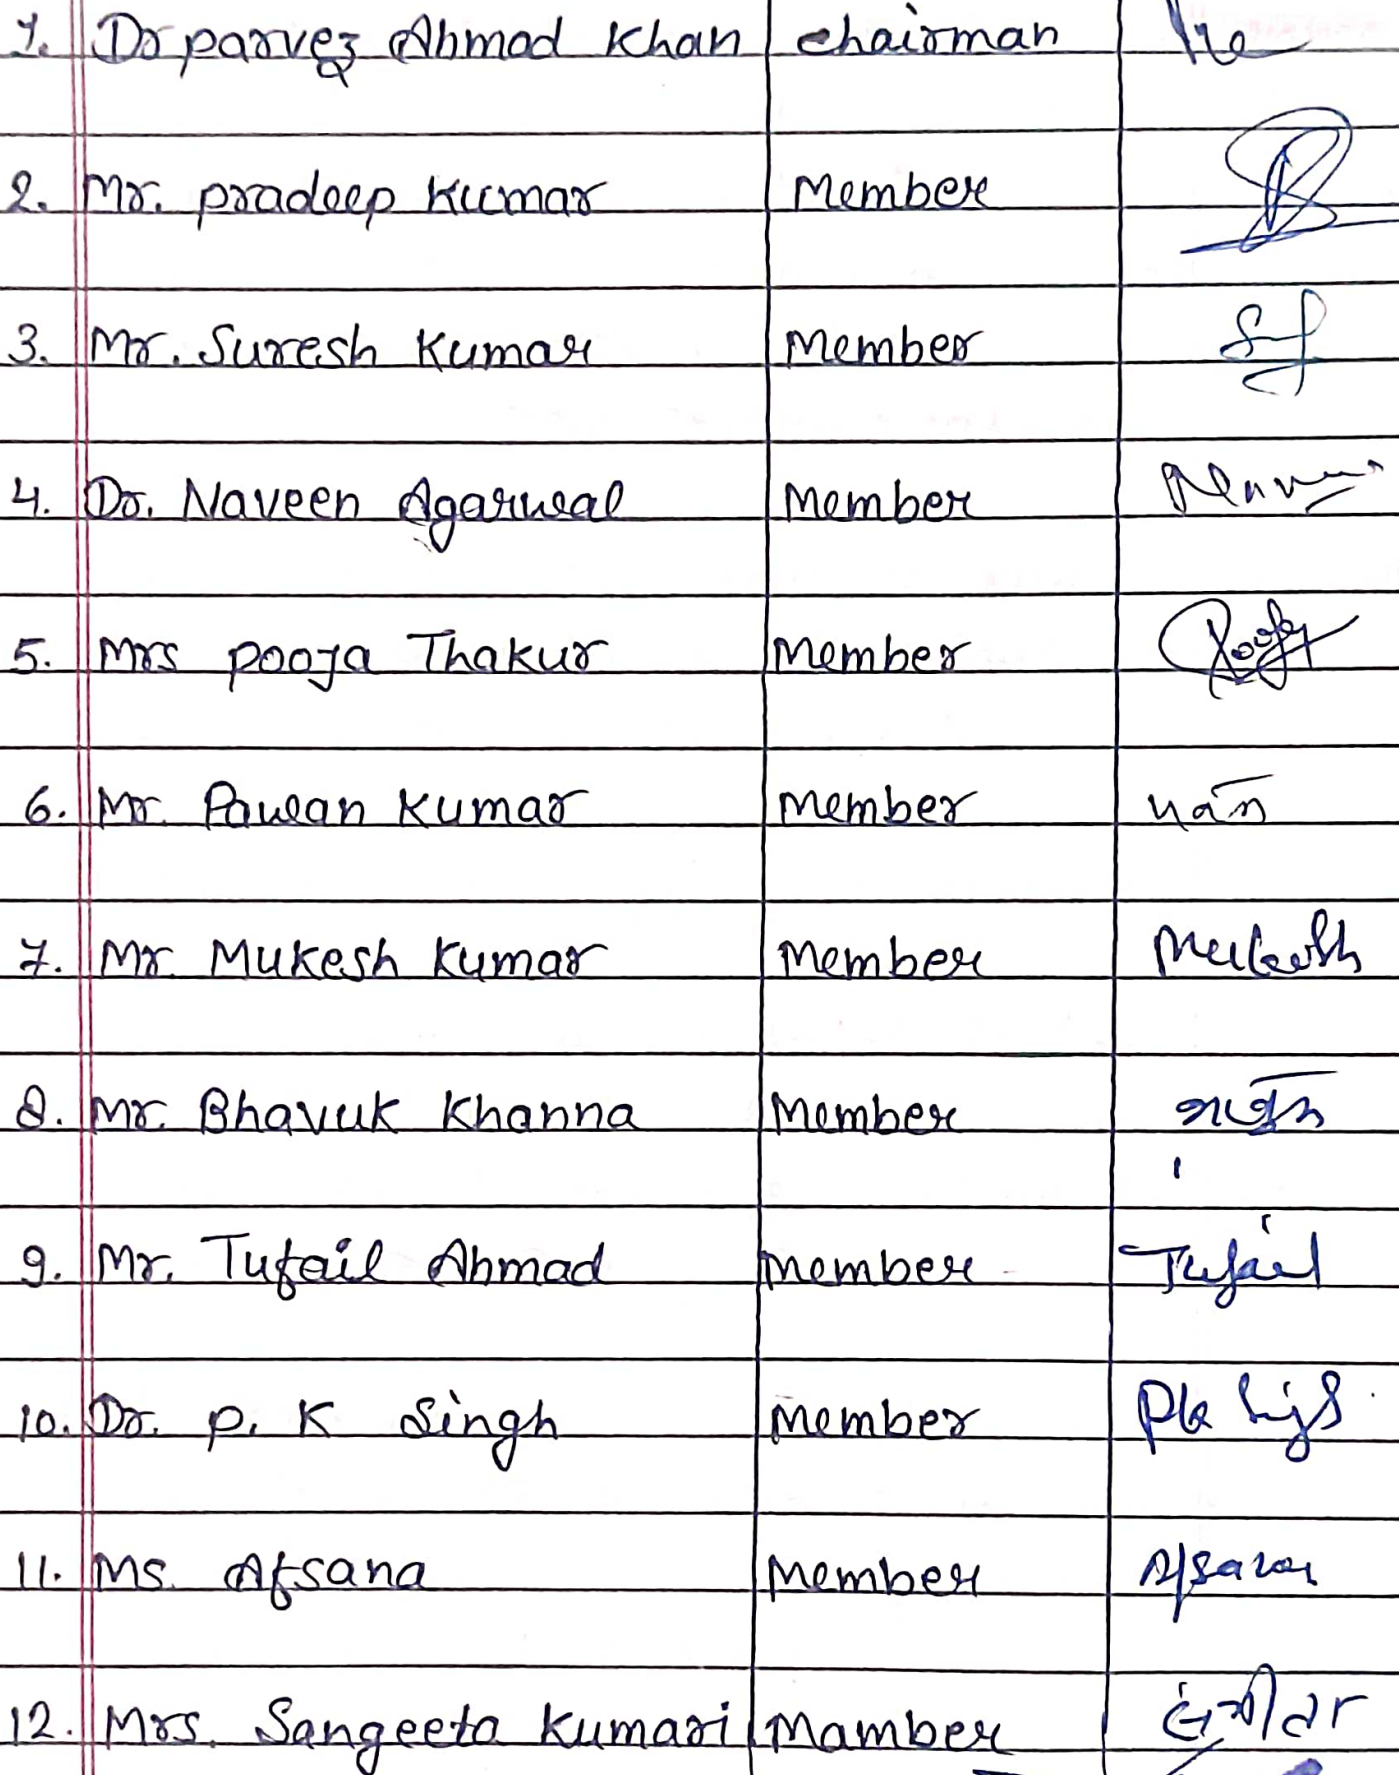 1. Dr parvez Ahmad Khan chairman
2. Mr. pradeep Kumar Member
3. Mr. Suresh Kumar Member
4. Dr. Naveen Agarwal Member
5. Mrs pooja Thakur Member
6. Mr. Pawan Kumar Member
7. Mr. Mukesh Kumar Member Mukesh
8. Mr. Bhavuk Khanna Member
9. Mr. Tufail Ahmad Member Tufail
10. Dr. P. K Singh Member
11. Ms. Afsana Member
12. Mrs. Sangeeta Kumari Mamber